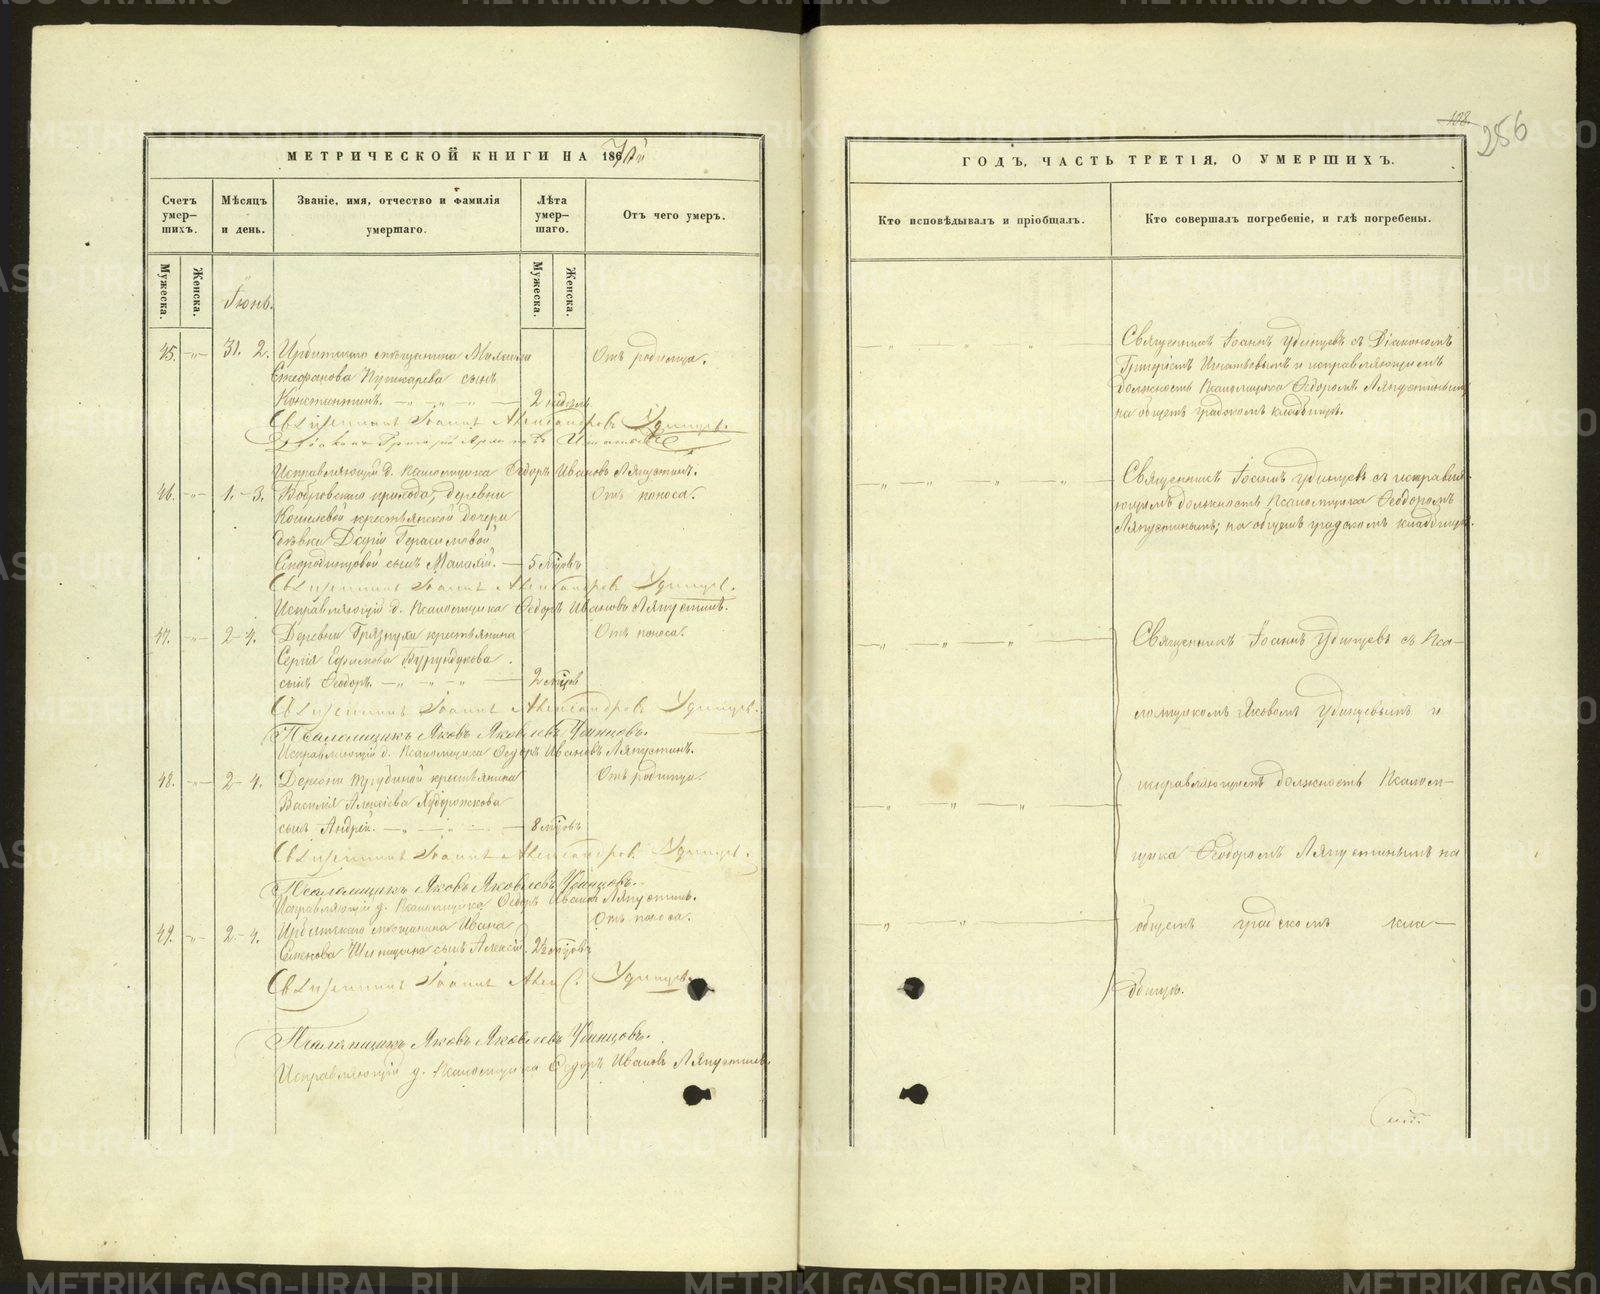 МЕТРИЧЕСКОЙ КНИГИ НА 186
Счетъ умер-шихъ.
Мѣсяцъ и день.
Званіе, имя, отчество и фамилія умершаго.
Лѣта умер-шаго.
Отъ чего умеръ.
Мужеска.
Женска.
Мужеска.
Женска.
Іюнь.
45. 31. 2. Ирбитскаго мѣщанина
Стефанова Пушкарева сынъ
Константинъ. 2 недель
Отъ родимца.
Священникъ Іоаннъ Александровъ Удинцевъ.
Исправляющій д. Псаломщика Ѳедоръ Ивановъ Ляпустинъ.
46. 1. 3. Бобровскаго прихода, деревни
крестьянской дочери
дѣвки Дарьи Герасимовой
сынъ 5 мѣсцовъ
Отъ поноса.
Священникъ Іоаннъ Александровъ Удинцевъ.
Исправляющій д. Псаломщика Ѳедоръ Ивановъ Ляпустинъ.
47. 2 4. Деревни Грязнухи крестьянина
Сергія Ефимова Бурундукова
сынъ Ѳеодоръ. 2 мѣсцов
Отъ поноса.
Священникъ Іоаннъ Александровъ Удинцевъ.
Псаломщикъ Яковъ Яковлевъ Удинцовъ.
Исправляющій д. Псаломщика Ѳедоръ Ивановъ Ляпустинъ.
48. 2 4. Деревни крестьянина
Василія Алексіева Худорожкова
сынъ Андрей. 8 мѣсцовъ
Отъ родимца.
Священникъ Іоаннъ Александровъ Удинцевъ.
Псаломщикъ Яковъ Яковлевъ Удинцовъ.
Исправляющій д. Псаломщика Ѳедоръ Ивановъ Ляпустинъ.
49. 2 4. Ирбитскаго мѣщанина Ивана
Семенова Шипицына сынъ Алексій. 2½ мѣсцовъ
Отъ поноса.
Священникъ Іоаннъ Алекс. Удинцевъ.
Псаломщикъ Яковъ Яковлевъ Удинцовъ.
Исправляющій д. Псаломщика Ѳедоръ Ивановъ Ляпустинъ.
108.
256
ГОДЪ, ЧАСТЬ ТРЕТІЯ, О УМЕРШИХЪ.
Кто исповѣдывалъ и пріобщалъ.
Кто совершалъ погребеніе, и гдѣ погребены.
Священникъ Іоаннъ Удинцевъ съ Діакономъ
Григоріемъ Игнатьевымъ и исправляющимъ
должность Псаломщика Ѳедоромъ Ляпустинымъ
на общемъ градскомъ кладбищѣ.
Священникъ Іоаннъ Удинцевъ съ исправля
ющимъ должность Псаломщика Ѳеодоромъ
Ляпустинымъ, на общемъ градскомъ кладбищѣ.
Священникъ Іоаннъ Удинцевъ съ Пса-
ломщикомъ Яковомъ Удинцевымъ и
исправляющимъ должность Псалом-
щика Ѳеодоромъ Ляпустинымъ на
общемъ градскомъ кла-
дбищѣ.
METRIKI.GASO-URAL.RU